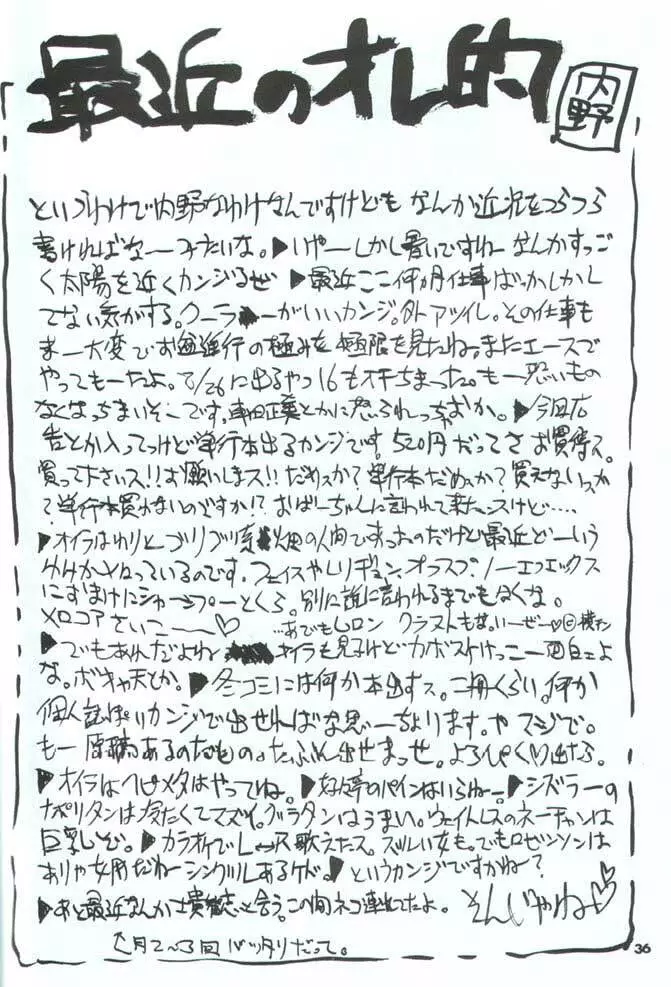 最近のオレ的
内野
というわけで内野なわけなんですけども なんか近況をつらつら
書ければなーみたいな。▶いやーしかし暑いですねーなんかすっご
く太陽を近くカンジるぜ ▶最近ここ何カ月仕事ばっかしかし
てない気がする。クーラーがいいカンジ。外アツイし。その仕事も
まー大変です 進行の極みを極限を見たね。またエースで
やってもーたよ。8/26に出るやつ16もオチちまった。もー恐いもの
なくなっちまいそーです。車田正美とかに怒られっちゃおか。▶今回広
告とか入ってっけど単行本出るカンジです。520円だってさ お買得ス。
買って下さいス!!お願いしまス!!だめスか?単行本だめスか?買えないスか
?単行本買わないのですか!?おばーちゃんに言われて来たスけど…..
▶オイラはわりと ゴリゴリ系 畑の人間ですったのだけど最近どーいう
わけか なっているのです。フェイスやレリヂョン、オフスプ、ノーエフエックス
におまけにシャー プーとくら。別に誰に言われるまでもなくな。
メロコアさいこー~♡ …あでもムロン クラストも
▶でもあれだよね オイラも見てっけど カボスけっこー面白ェよ
な。ボキャ天とか。▶冬コミには何か本出すス。二冊くらい。何か
個人誌ぽいカンジで出せればな思ーちょります。や マジで。
もー原稿あるのだもの。たぶん出せまっせ。よろぴく♡出たら
▶オイラはヘビメタはやってね。▶ のパインはいらねー。▶シズラーの
ナポリタンは冷たくてマズイ。グラタンはうまい。ウェイトレスのネーチャンは
巨乳しむ。▶カラオケでL 歌えたス。ズルい女も。でもロゼンソンは
ありゃ女用だねーシングルあるケド。▶というカンジですかね~?
▶あと最近なんか士貴智志と会う。この間ネコ連れてたよ。そんじゃね♡♡
月2~3回バッタリだって。
36